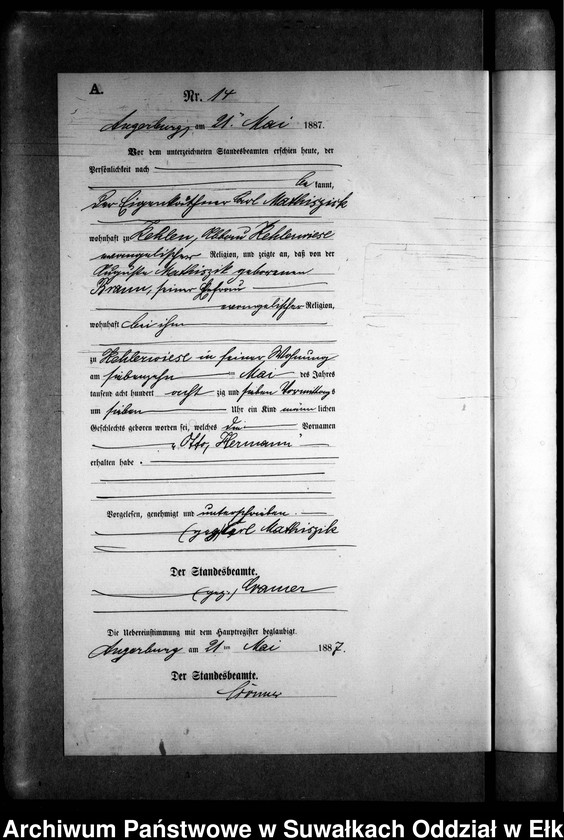 A.
Nr. 14
Angerburg, am 21ten Mai 1887.
Vor dem unterzeichneten Standesbeamten erschien heute, der
Persönlichkeit nach
be kannt,
der Eigenkäthner Carl Mathiszik
wohnhaft zu Kehlen, Abbau Kehlerwiese
evangelischer Religion, und zeigte an, daß von der
Auguste Mathiszik geborenen
Braun, seiner Ehefrau
evangelischer Religion,
wohnhaft bei ihm
zu Kehlerwiese in seiner Wohnung
am siebenzehn Mai des Jahres
tausend acht hundert acht zig und sieben Vormittags
um sieben Uhr ein Kind männlichen
Geschlechts geboren worden sei, welches die Vornamen
„Otto, Hermann"
erhalten habe.
Vorgelesen, genehmigt und unterschrieben
(gez.) Carl Mathiszik
Der Standesbeamte.
(gez.) Cramer
Die Uebereinstimmung mit dem Hauptregister beglaubigt.
Angerburg am 21ten Mai 1887.
Der Standesbeamte.
Cramer
Archiwum Państwowe w Suwałkach Oddział w Ełk